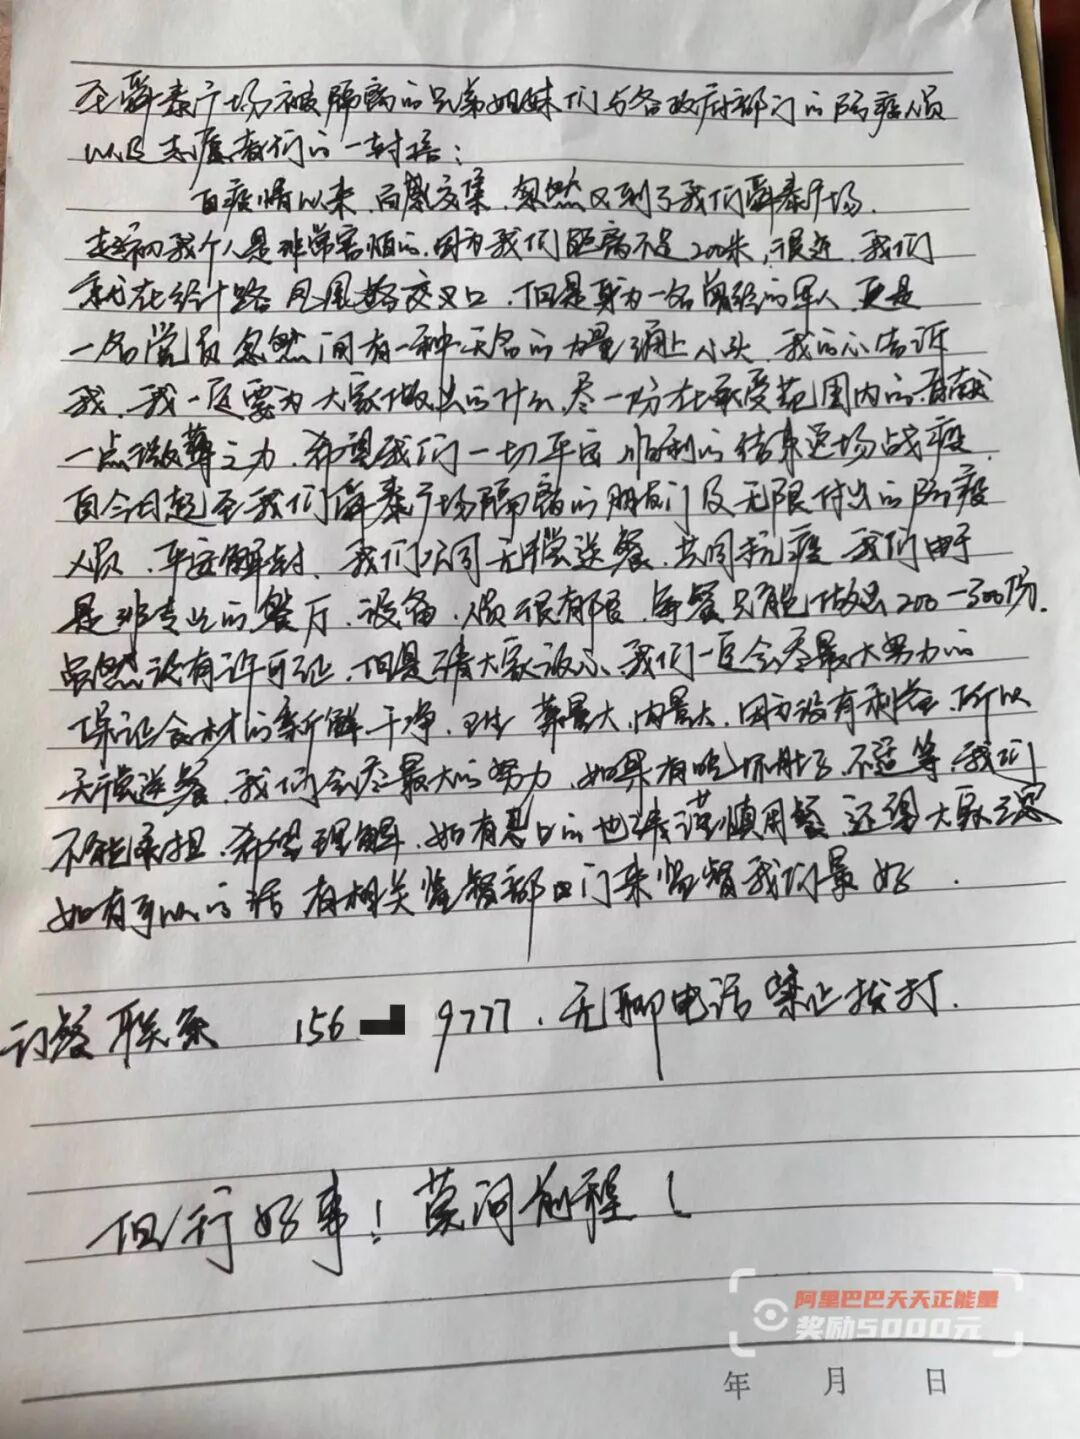 至舜泰广场被隔离的兄弟姐妹们与各政府部门的防疫人员
以及志愿者们的一封信:
自疫情以来,百感交集,忽然又到了我们舜泰广场.
起初我个人是非常害怕的,因为我们距离不足200米,很近,我们
就在经十路凤凰路交叉口,但是身为一名曾经的军人,更是
一名党员忽然间有一种无名的力量涌上心头,我的心告诉
我,我一定要为大家做出的什么,尽一份在承受范围内的贡献
一点微薄之力,希望我们一切平安,顺利的结束这场战疫,
自今日起至我们舜泰广场隔离的朋友们及无限付出的防疫
人员,平安解封,我们公司无偿送餐,共同抗疫,我们由于
是非专业的餐厅,设备,人员很有限,每餐只能做出200-300份.
虽然没有许可证,但是请大家放心,我们一定会尽最大努力的
保证食材的新鲜干净,卫生,菜量大,肉量大,因为没有利益,所以
无偿送餐,我们会尽最大的努力,如果有吃坏肚子,不适等,我们
不能承担,希望理解,如有忌口的也请谨慎用餐,还望大家注意
如有可以的话有相关监督部门来监督我们最好.
订餐联系 156 9777,无聊电话禁止拨打.
但行好事!莫问前程!
阿里巴巴天天正能量
奖励5000元
年 月 日